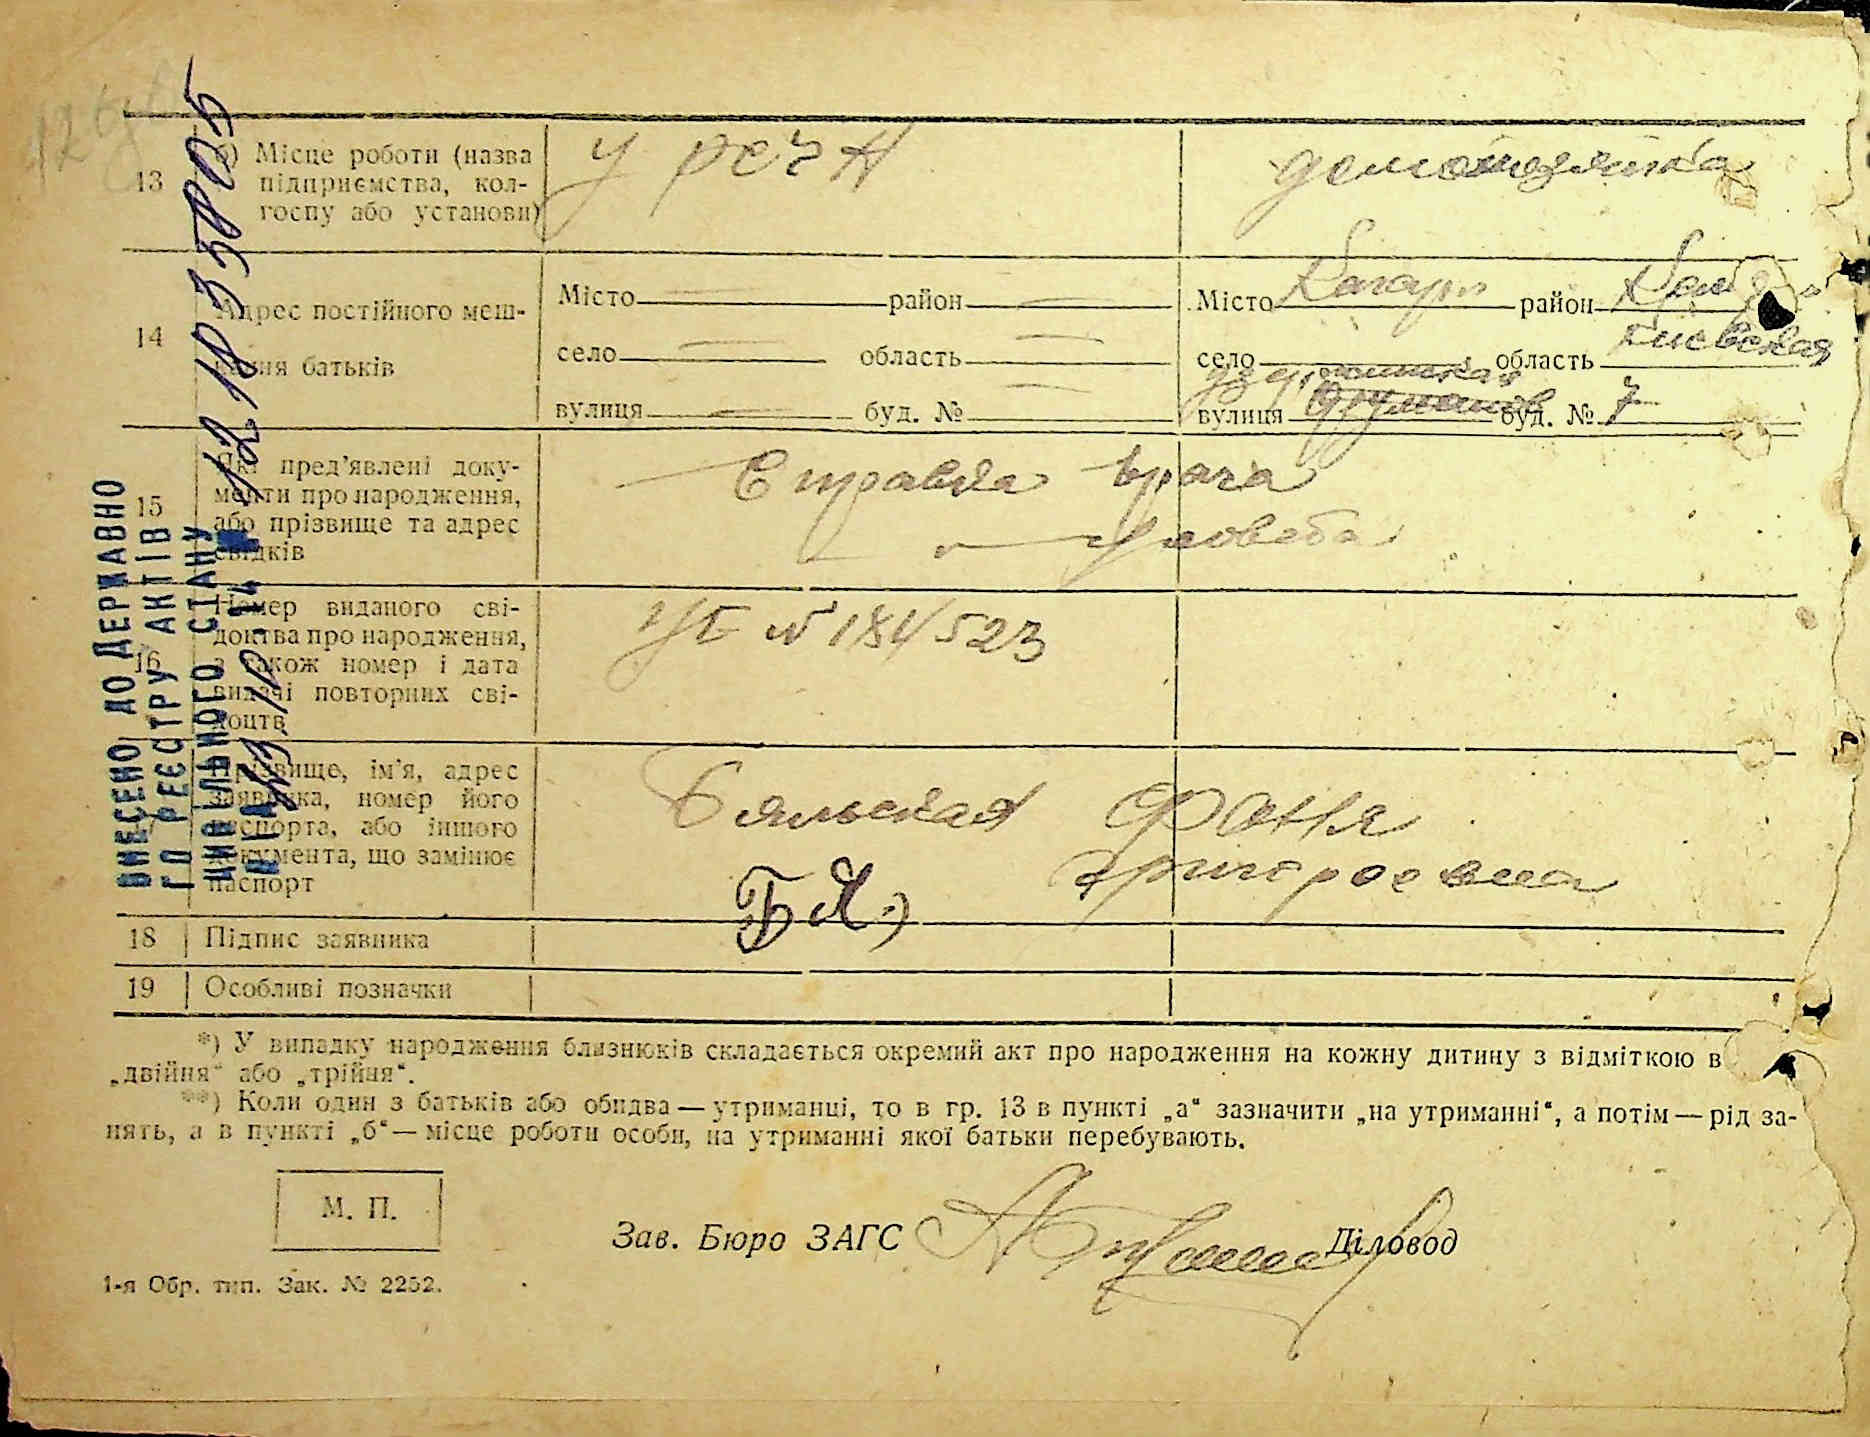 13 б) Місце роботи (назва
підприємства, кол-
госпу або установи)
У РСЧА
домохозяйка
14 Адрес постійного меш-
кання батьків
Місто — район —
село — область —
вулиця — буд. № —
Місто район
село область Киевская
вулиця буд. № 7
15 Які пред’явлені доку-
менти про народження,
або прізвище та адрес
свідків
Справка врача
16 Номер виданого сві-
доцтва про народження,
а також номер і дата
видачі повторних сві-
доцтв
№ 181523
17 Прізвище, ім’я, адрес
заявника, номер його
паспорта, або іншого
документа, що замінює
паспорт
Бяльская Фаня
Григорoевна
18 Підпис заявника
БЯ
19 Особливі позначки
ВНЕСЕНО ДО ДЕРЖАВНО
ГО РЕЄСТРУ АКТІВ
ЦИВІЛЬНОГО СТАНУ
*) У випадку народження близнюків складається окремий акт про народження на кожну дитину з відміткою в
„двійня“ або „трійня“.
**) Коли один з батьків або обидва — утриманці, то в гр. 13 в пункті „а“ зазначити „на утриманні“, а потім — рід за-
нять, а в пункті „б“ — місце роботи особи, на утриманні якої батьки перебувають.
М. П.
Зав. Бюро ЗАГС Діловод
1-я Обр. тип. Зак. № 2252.